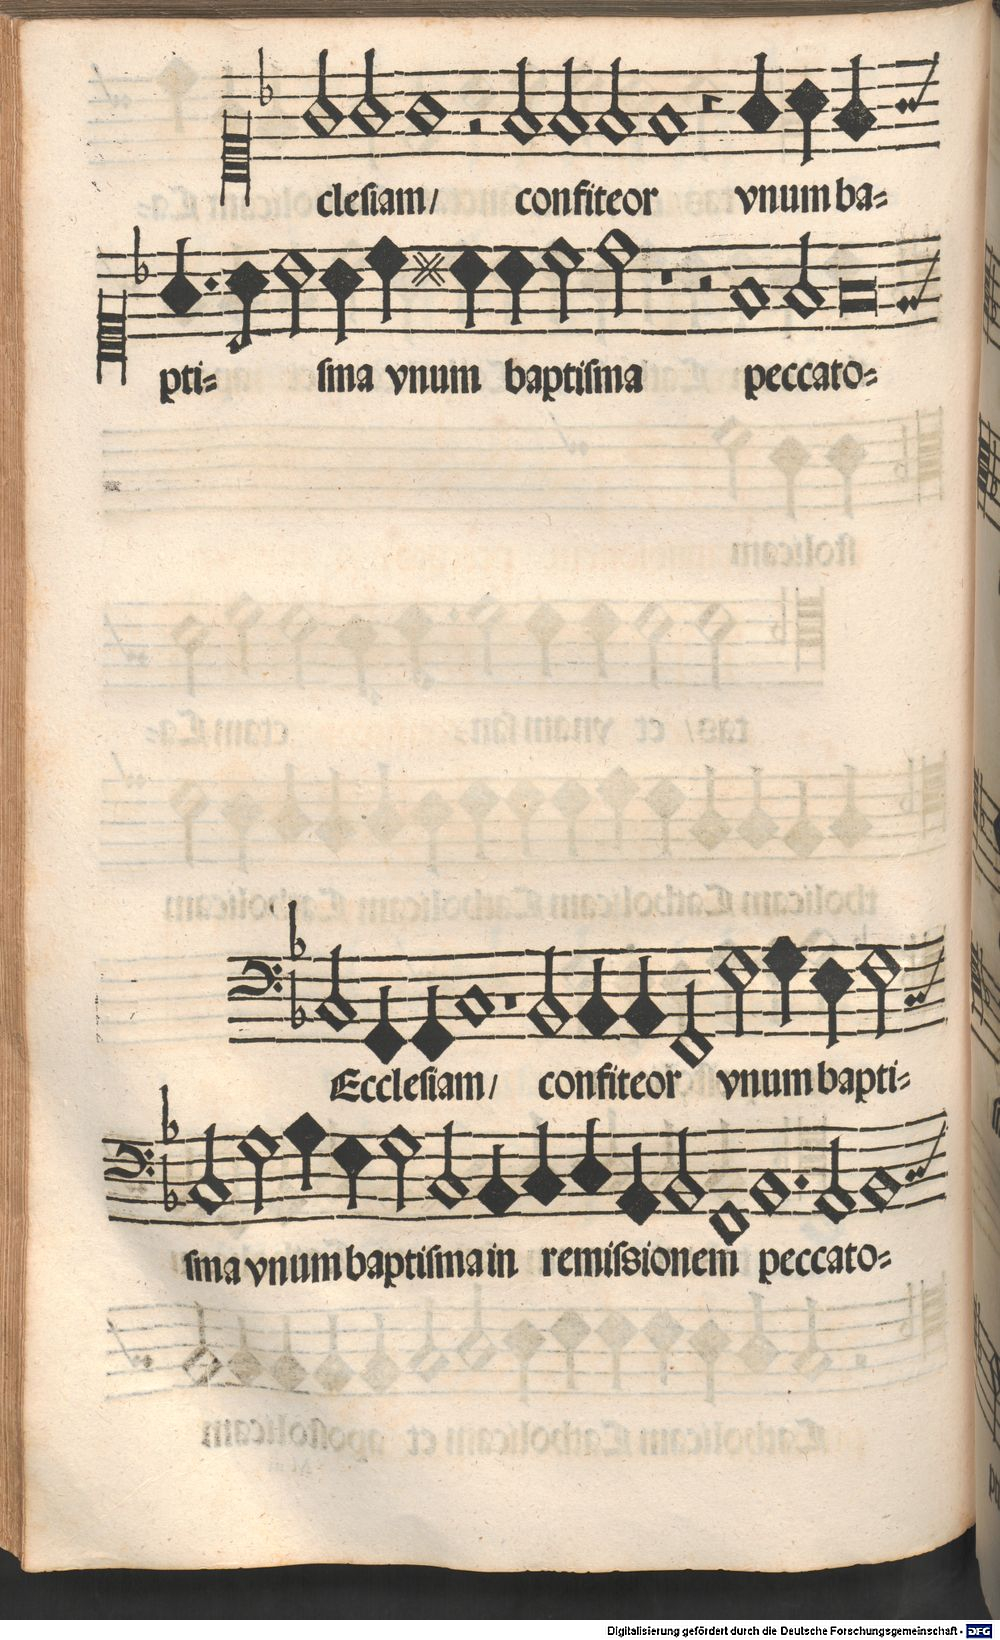 clesiam/ confiteor vnum ba=
pti= sma vnum baptisma peccato=
Ecclesiam/ confiteor vnum bapti=
sma vnum baptisma in remissionem peccato=
Digitalisierung gefördert durch die Deutsche Forschungsgemeinschaft - DFG